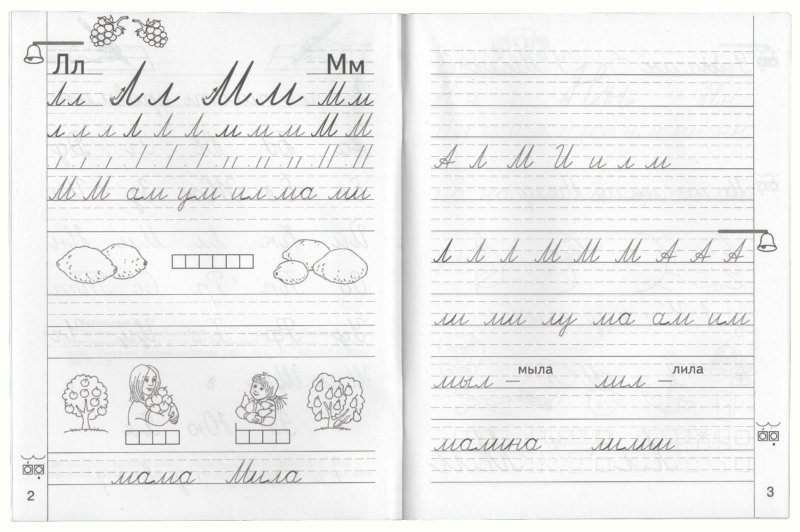 Лл Мм
Лл Лл Мм Мм
л л л Л Л Л м м м М М
М М ам ум ил ма ми
мама Мила
2
А Л М И и л м
Л Л Л М М М А А А
ли ми лу ма ам им
мыл – мыла лил – лила
малина лилии
3